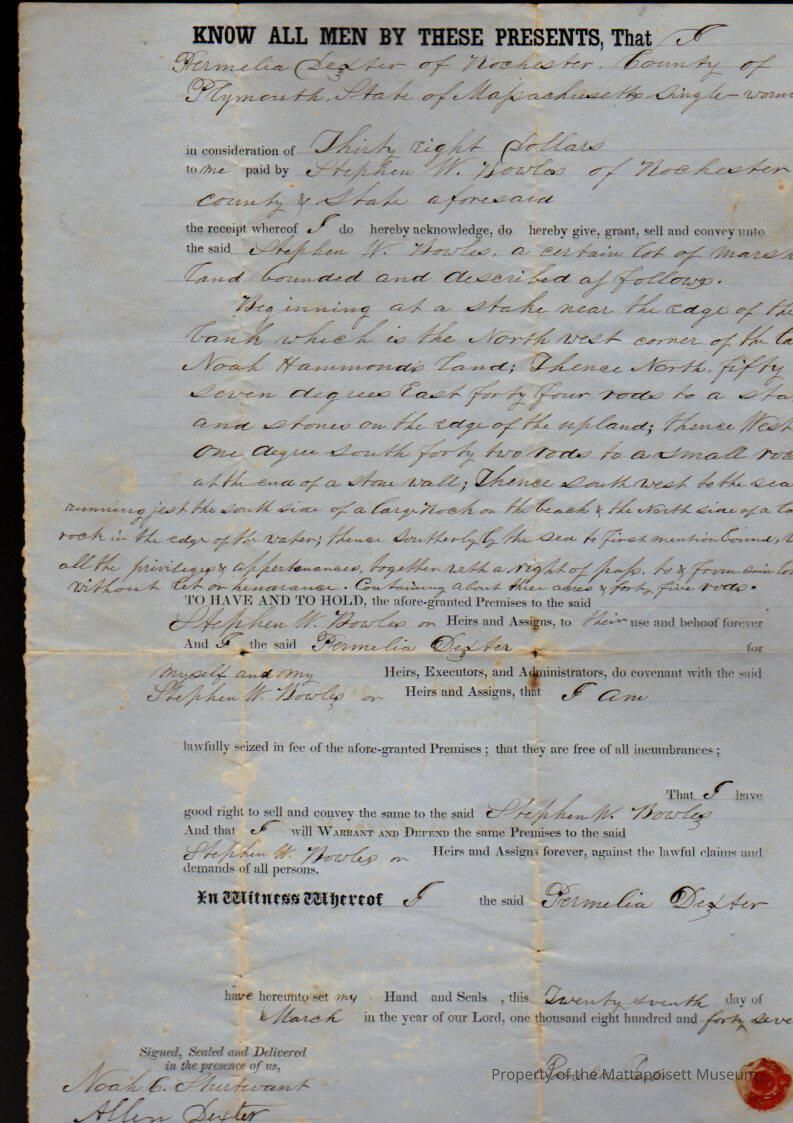 KNOW ALL MEN BY THESE PRESENTS, That I
Permelia Dexter of Rochester, County of
Plymouth, State of Massachusetts Single-wom
in consideration of Thirty eight Dollars
to me paid by Stephen W. Bowles of Rochester
county & State aforesaid
the receipt whereof I do hereby acknowledge, do hereby give, grant, sell and convey unto
the said Stephen W. Bowles, a certain lot of Marsh
land bounded and described as follows.
Beginning at a stake near the edge of the
bank which is the North west corner of the
Noah Hammonds land; Thence North, fifty
seven degrees East forty four rods to a sta
and stones on the edge of the upland; thence West
one degree south forty two rods to a small roc
at the end of a stone wall; Thence south west to the sea
running jest the south side of a large Rock on the beach & the North side of a
rock in the edge of the water; thence Southerly by the sea to first mention bound,
all the privileges & appertenances, together with a right of pass, to & from
without let or henarance. Containing about three acres & forty five rods.
TO HAVE AND TO HOLD, the afore-granted Premises to the said
Stephen W. Bowles or Heirs and Assigns, to their use and behoof forever
And I the said Permelia Dexter for
myself and my Heirs, Executors, and Administrators, do covenant with the said
Stephen W. Bowles or Heirs and Assigns, that I am
lawfully seized in fee of the afore-granted Premises; that they are free of all incumbrances;
That I have
good right to sell and convey the same to the said Stephen W. Bowles
And that I will WARRANT AND DEFEND the same Premises to the said
Stephen W. Bowles or Heirs and Assigns forever, against the lawful claims and
demands of all persons.
In Witness Whereof I the said Permelia Dexter
have hereunto set my Hand and Seals, this Twenty seventh day of
March in the year of our Lord, one thousand eight hundred and forty seve
Signed, Sealed and Delivered
in the presence of us,
Property of the Mattapoisett Museum
Noah C. Sturtevant
Allen Dexter